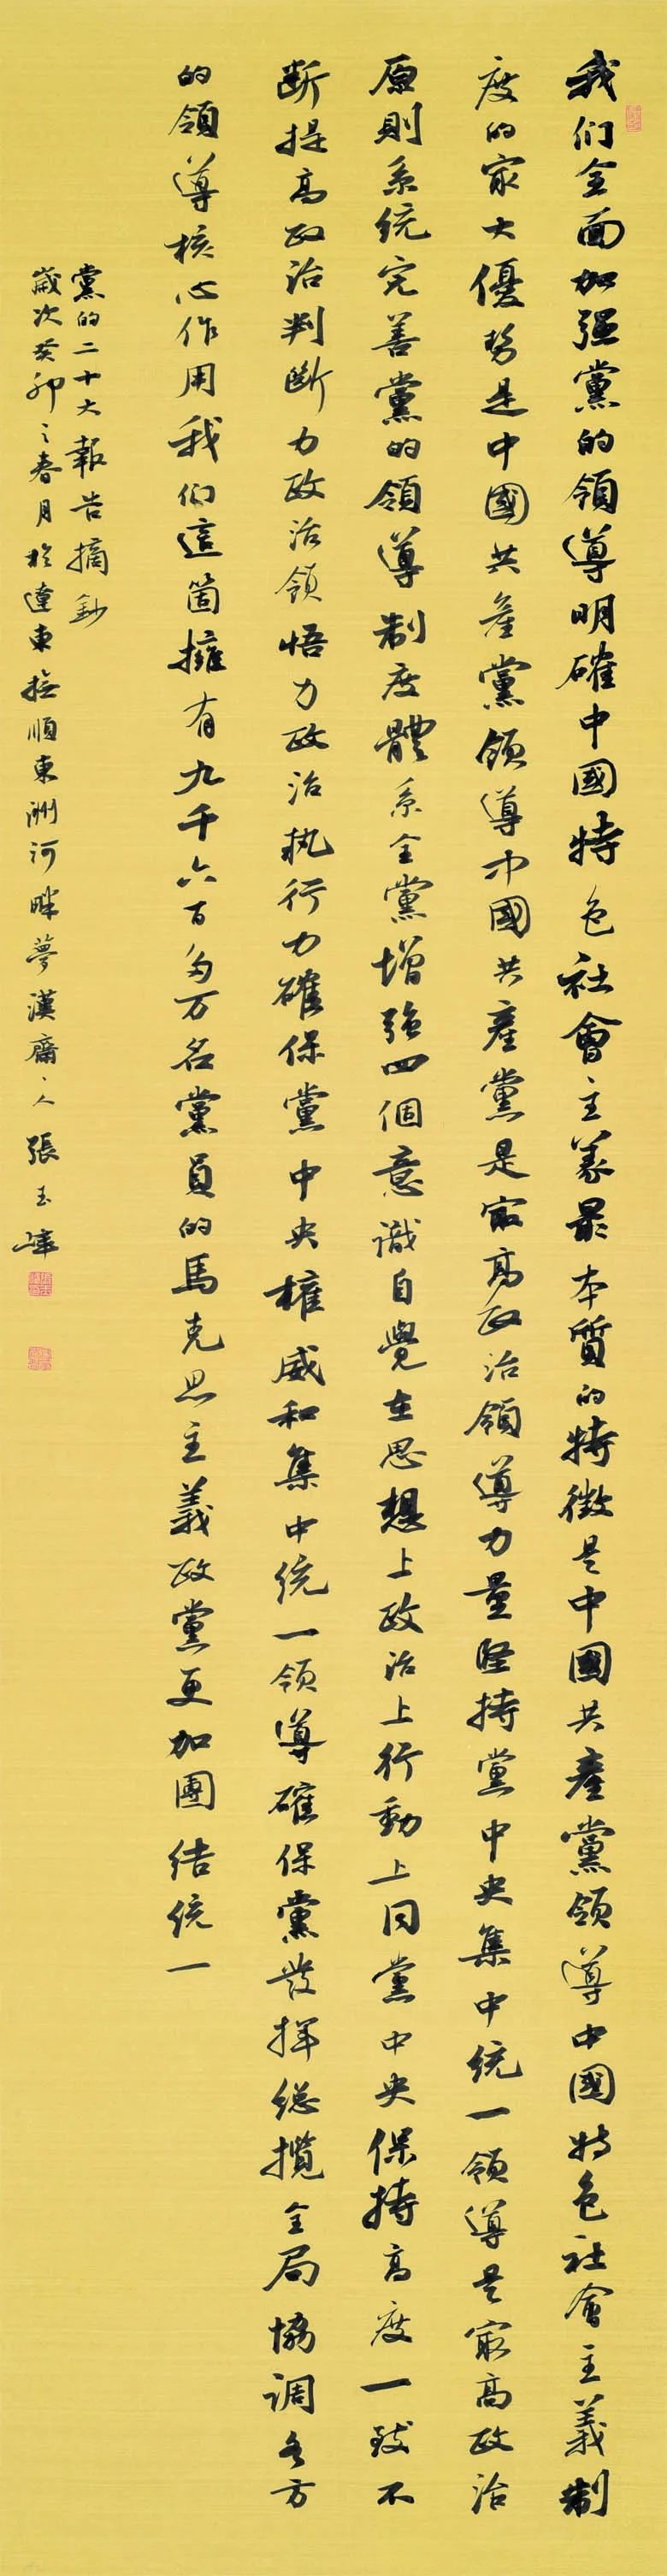 我们全面加强黨的領導明確中國特色社會主義最本質的特徵是中國共產黨領導中國特色社會主義制
度的最大優勢是中國共產黨領導中國共產黨是最高政治領導力量堅持黨中央集中統一領導是最高政治
原則系統完善黨的領導制度體系全黨增強四個意識自覺在思想上政治上行動上同黨中央保持高度一致不
斷提高政治判斷力政治領悟力政治執行力確保黨中央權威和集中統一領導確保黨發揮總攬全局協調各方
的領導核心作用我们這箇擁有九千六百多万名黨員的馬克思主義政黨更加團結統一
黨的二十大報告摘鈔
歲次癸卯之春月於遼東撫順東洲河畔夢漢齋主人張玉峰